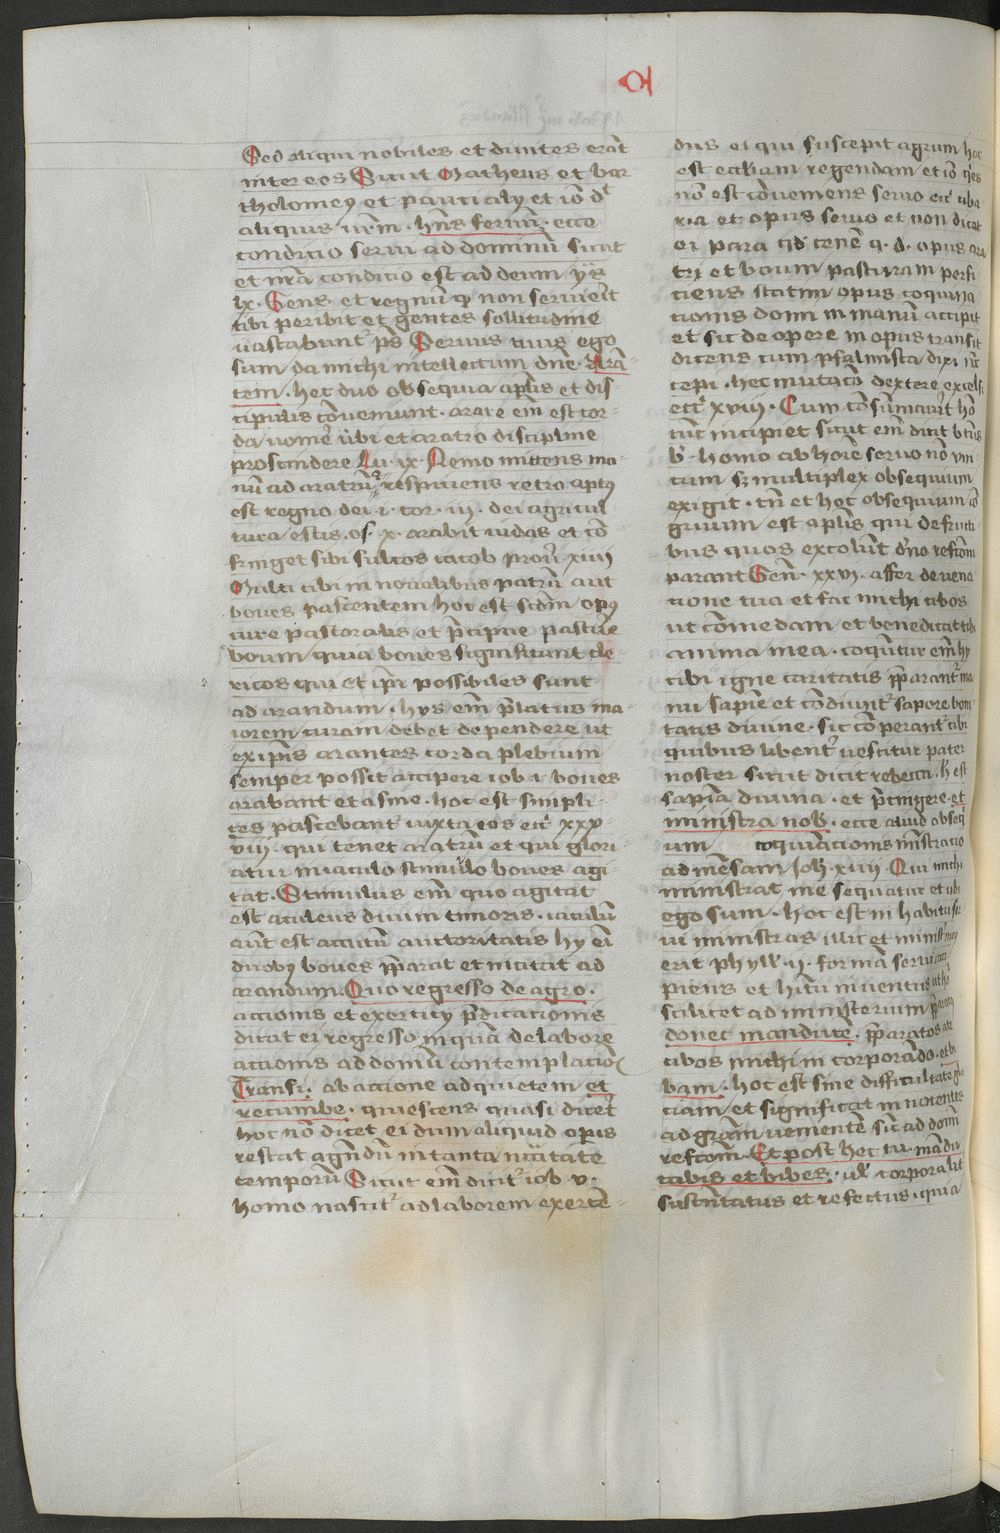 Sed aliqui nobiles et diuites erāt
inter eos Sicut Matheus et bar
tholomeꝯ et pauci alij et iō dꝭ
aliquis vr̄m . hn̄s seruū . ecce
condicio serui ad dominū sicut
et nr̄a condicio est ad deum ys
lx . Gens et regnū qd non seruierit
tibi peribit et gentes sollitudine
uastabuntʳ ps̄ Seruus tuus ego
sum da michi intellectum dn̄e . Arā
tem . hec duo obsequia apl̄is et dis-
cipulis ꝯueniunt . arare em̄ est cor-
da uomē ūbi et aratro discipline
proscindere Lu . ix . Nemo mittens ma-
nū ad aratrū respiciens retro aptꝯ
est regno dei . i . cor . iii . dei agricul
tura estis . os̄ . x . arabit iudas et cō
fringet sibi sulcos iacob prou̓ . xiii
Multi cibi in noualibus patrū aut
boues pascentem hoc est scd̄m opꝯ
cure pastoralis et p̄cipue pasture
boum quia boues significant cle-
ricos qui et ip̄i possibiles sunt
ad arandum . hijs em̄ p̄latus ma
iorem curam debet dependere ut
ex ip̄is arantes corda plebium
semper possit accipere iob . i . boues
arabant et asine . hoc est simpli-
ces pascebantʳ iuxta eos ecc̓ xxx-
viii . qui tenet aratrū et qui glori-
atur in iaculo stimulo boues agi
tat . Stimulus em̄ quo agitat
est aculeus diuini timoris . iaculū
aūt est accutū auctoritatis hij em̄
duobꝯ boues p̄parat et incitat ad
arandum . Quo regresso de agro .
actionis et exercitij p̄dicationis
dicat ei regresso inquā de labore
actionis ad domū contemplacion̄
Transi . ab actione ad quietem et
recumbe . quiescens quasi dicet
hoc nō dicet ei dum aliquid operis
restat agendū in tanta nccītate
temporū Sicut em̄ dicitʳ iob . v .
homo nascitʳ ad laborem exercē-
dus ei qui suscepit agrum hoc
est eccl̄iam regendam et iō q̓es
nō est ꝯueniens seruo
et opus seruo et non dicat
ei para qd̓ cenē q . d . opus ara
tri et boum pasturam perfi
ciens statim opus coquina
tionis domi in manū accipit
et sic de opere in opus transit
dicens cum psalmista dixi nūc
cepi . hec mutatō dextere excelsi
ecc̓ xviii . Cum cōsūmauerit hō
tūc incipiet sicut em̄ dicit btūs
b̓ . homo ab hoīe seruo nō vni
cum sꝫ multiplex obsequium
exigit . tn̄ et hoc obsequium cō
gruum est apl̄is qui de fructi
bus quos excolūt dn̄o refcōm
parant Gen̄ . xxvii . affer de vena
tione tua et fac michi cibos
ut cōmedam et benedicat tibi
anima mea . coquūtur em̄ hij
cibi igne caritatis p̄parantʳ ma
nu sapīe et cōdiuntʳ sapore boni
tatis diuine . sic cōperantʳ cibi
quibus libentʳ uescitur pater
noster sicut dicit rebecca . h̓ est
sapīa diuina . et p̄cingere . et
ministra nob̓ . ecce aliud obseq̓
um coquinacionis mīstracio
ad mēsam Joh̓ . xiiii . Qui michi
ministrat me sequatur et ubi
ego sum . hoc est in habitu
ministras illic et minist̓ meꝯ
erit phyll̓ . ii . formā serui acci-
piens et hītu inuentus ut hō
scilicet ad ministerium p̄parās
donec manducē . p̄paratos
cibos michi incorporādo . et bi
bam . hoc est sine difficultate gla
ciam et significat innocentes
ad grām uenientē sic̄ ad dom̄
refcōm . Et post hec tu mādu
cabis et bibes . ul̓ corporalit̓
sustentatus et refectus . quia